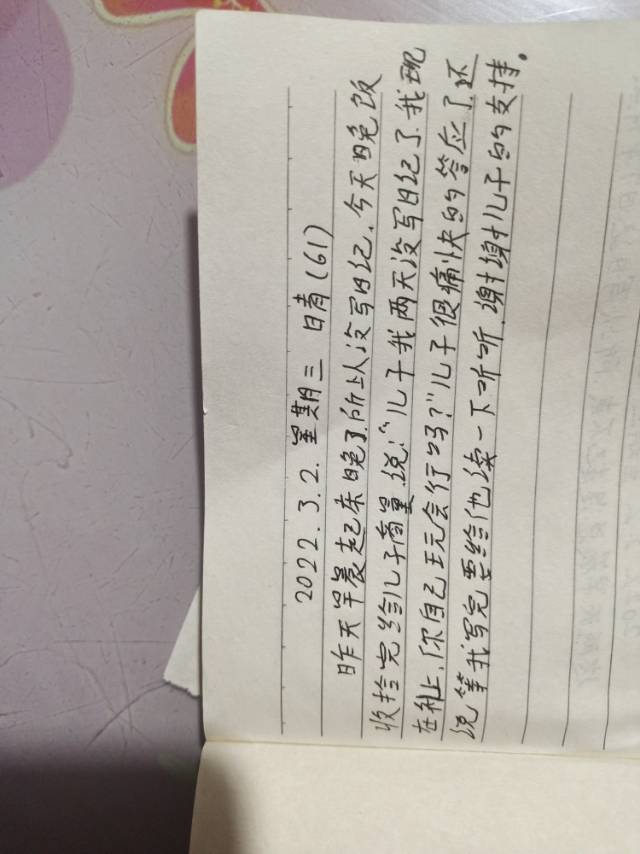 2022.3.2. 星期三 晴(61)
昨天早晨起床晚了.所以没写日记.今天晚饭
收拾完给儿子商量.说:“儿子我两天没写日记了.我现
在补上,你自己玩会行吗?”儿子很痛快的答应了.还
说等我写完要给他读一下听听.谢谢儿子的支持.